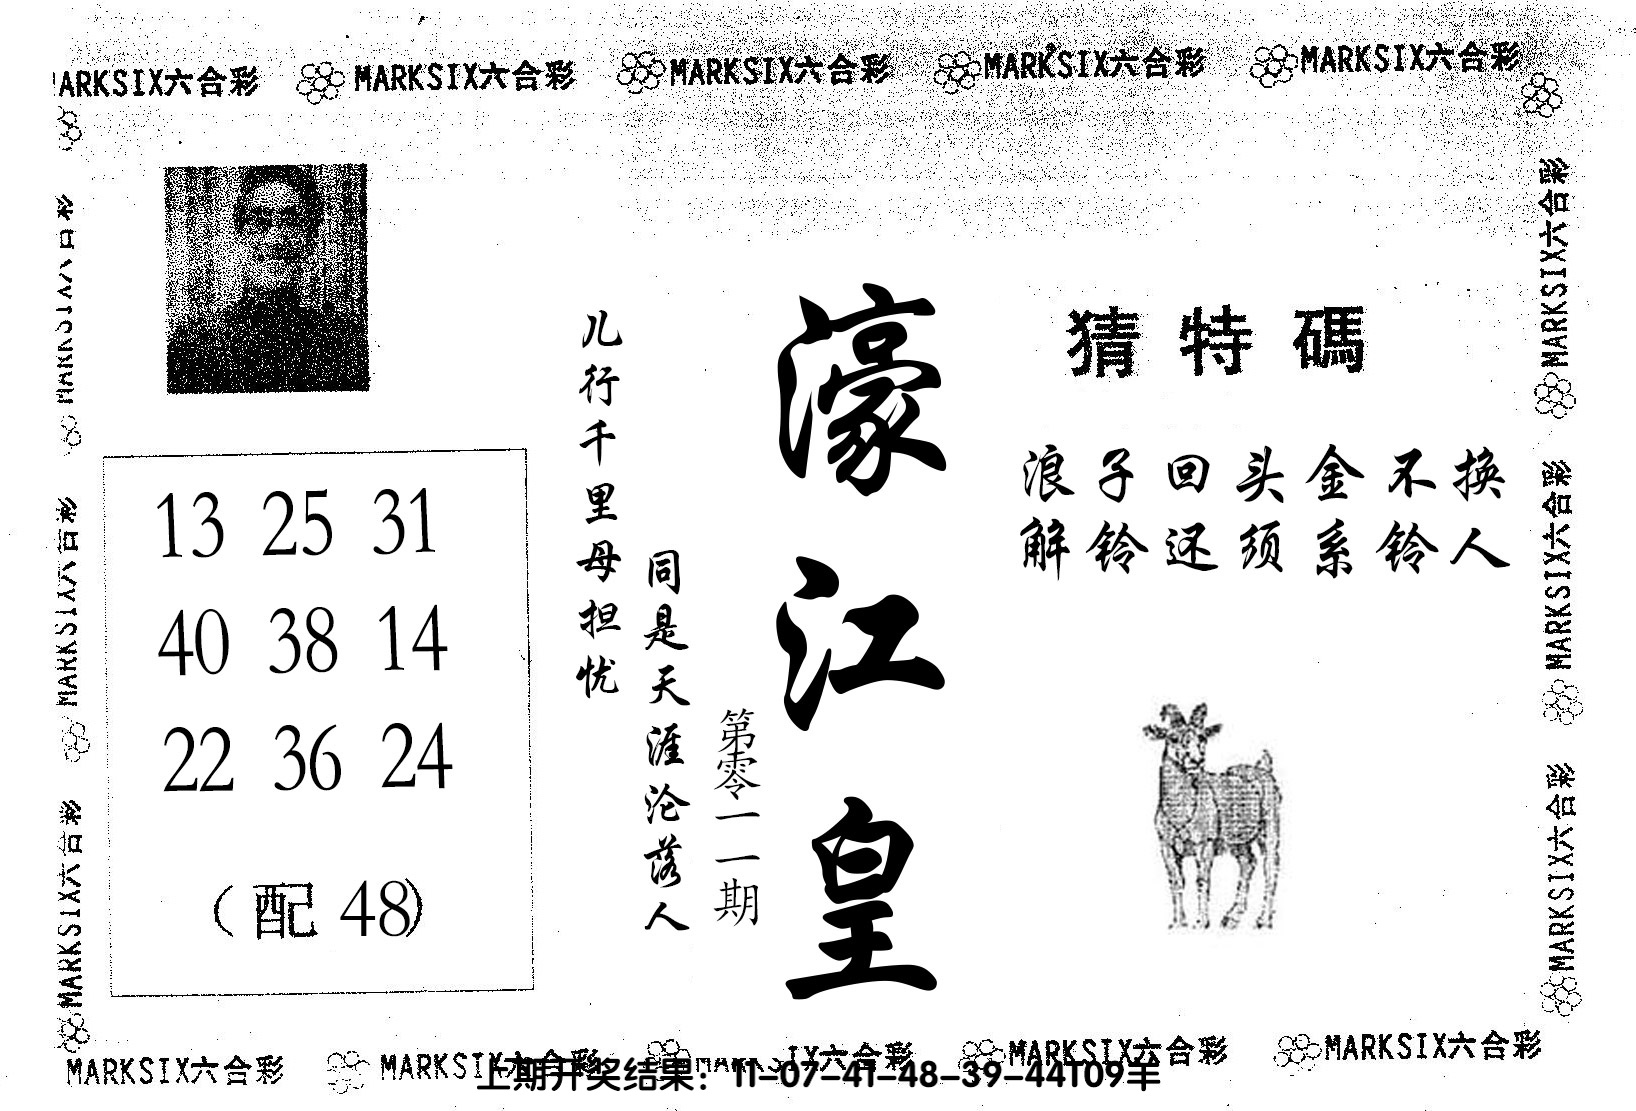 MARKSIX六合彩 MARKSIX六合彩 MARKSIX六合彩 MARKSIX六合彩
猜特碼
浪子回头金不换
解铃还须系铃人
濠江皇
第零一一期
同是天涯沦落人
儿行千里母担忧
13 25 31
40 38 14
22 36 24
（配 48）
MARKSIX六合彩
MARKSIX六合彩
MARKSIX六合彩
MARKSIX六合彩
MARKSIX六合彩
MARKSIX六合彩 MARKSIX六合彩 MARKSIX六合彩 MARKSIX六合彩
上期开奖结果：11-07-41-48-39-44T09羊